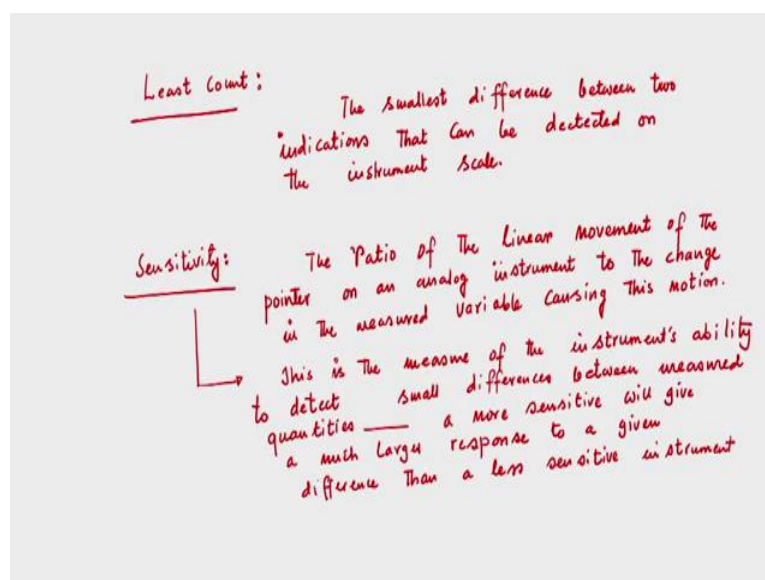 Least Count:
The smallest difference between two
indications that can be dectected on
the instrument scale.
Sensitivity:
The Ratio of the linear movement of the
pointer on an analog instrument to the change
in the measured variable causing this motion.
This is the measure of the instrument's ability
to detect small differences between measured
quantities — a more sensitive will give
a much larger response to a given
difference than a less sensitive instrument